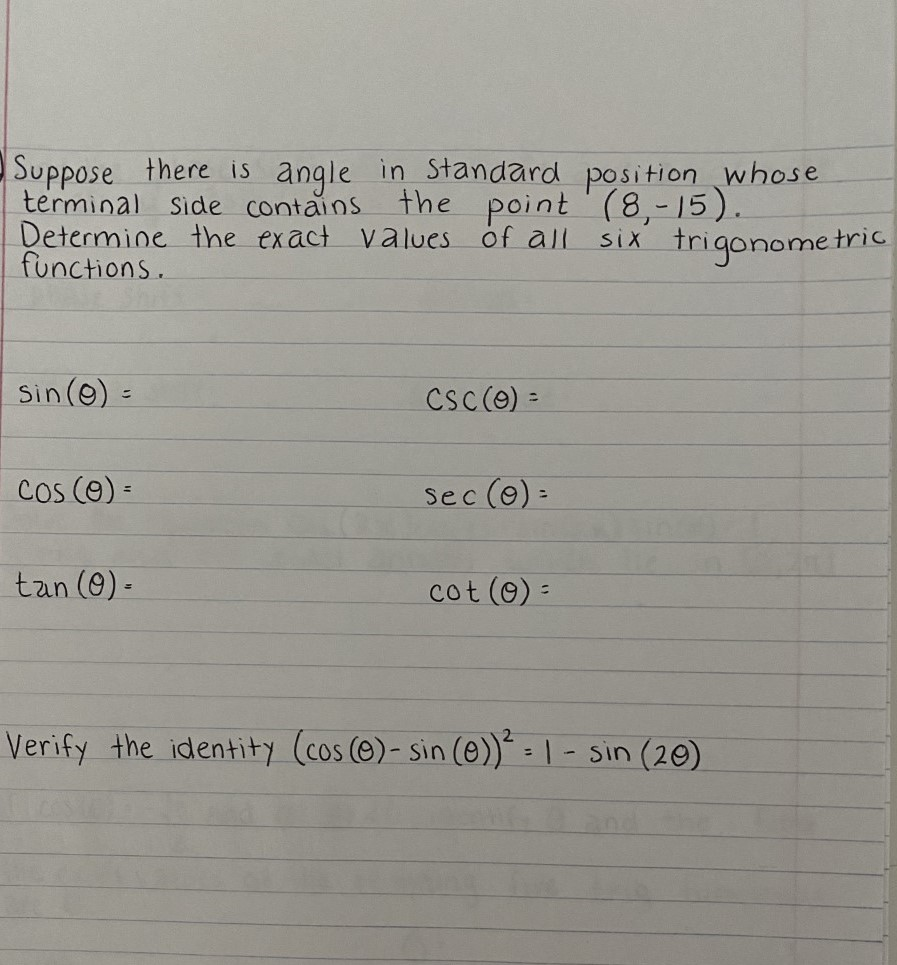 Suppose there is angle in standard position whose
terminal side contains the point (8,-15).
Determine the exact values of all six trigonometric
functions.
sin(θ) = csc(θ) =
cos(θ) = sec(θ) =
tan(θ) = cot(θ) =
Verify the identity (cos(θ) - sin(θ))² = 1 - sin(2θ)